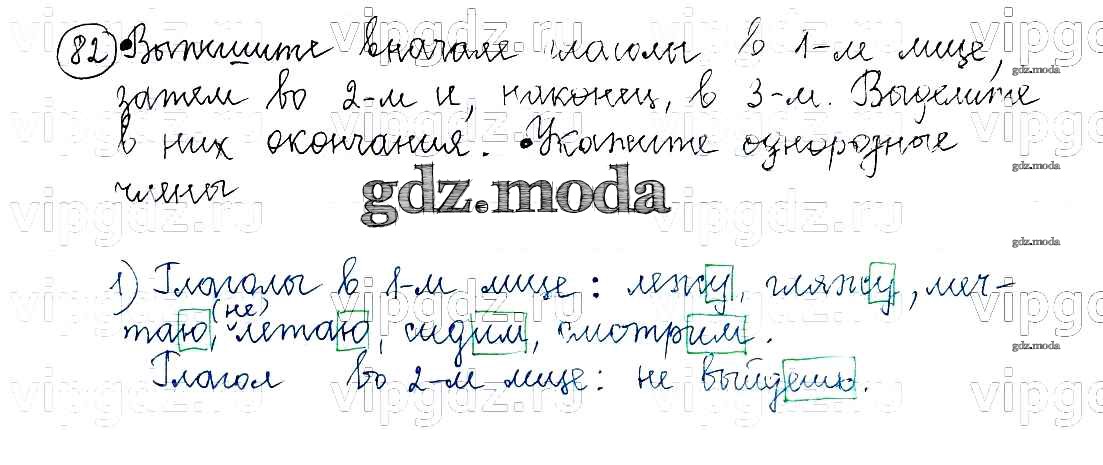 82 • Выпишите вначале глаголы в 1-м лице,
затем во 2-м и, наконец, в 3-м. Выделите
в них окончания. • Укажите однородные
члены
gdz.moda
1) Глаголы в 1-м лице: лежу, гляжу, меч-
(не)
таю, летаю, сидим, смотрим.
Глагол во 2-м лице: не выйдешь.
vipgdz.ru
gdz.moda
gdz.moda
gdz.moda
gdz.moda